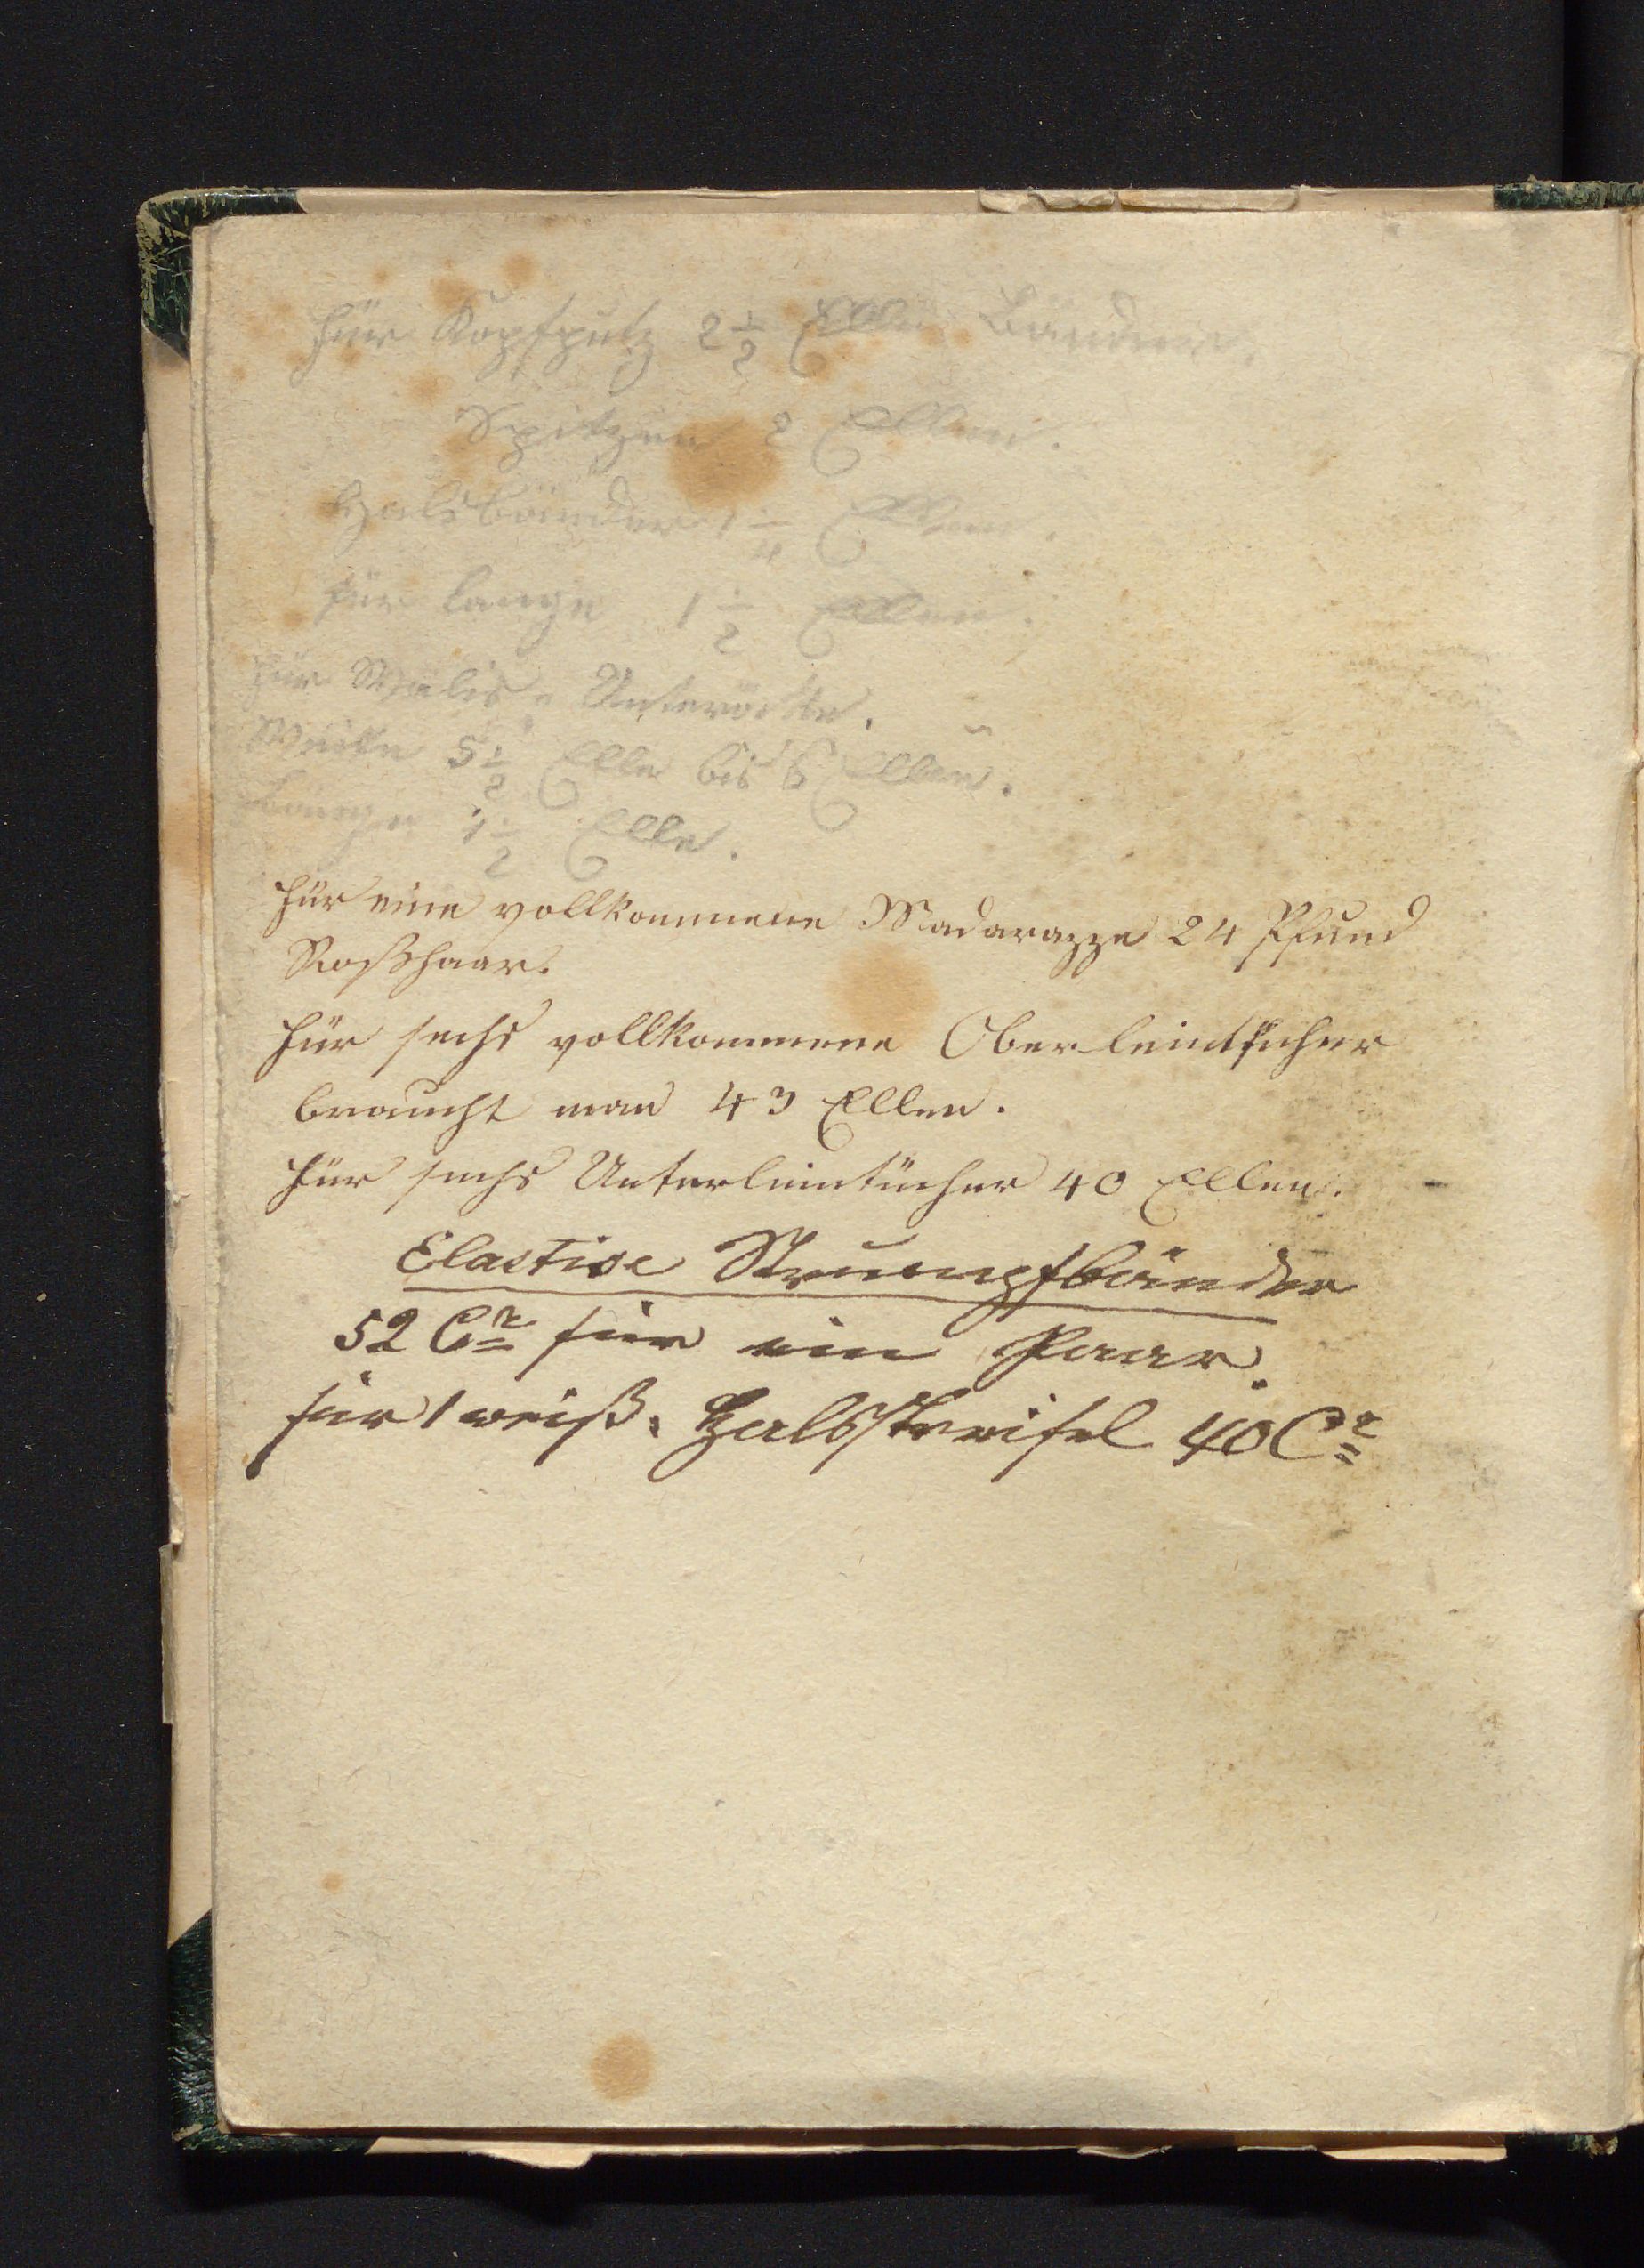 Für Kopfputz 2 1/2 Ellen Bänder.
Spitzen 2 Ellen.
Halsbänder 1 1/4 Ellen.
für lange 1 1/2 Ellen.
Für Unterröcke.
Weite 5 1/2 Elle bis 6 Ellen.
Länge 1 1/2 Elle.
Für eine vollkommene Madarazze 24 Pfund
Roßhaar.
Für sechs vollkommene Oberleintücher
braucht man 43 Ellen.
Für sechs Unterleintücher 40 Ellen.
Elastise Strumpfbänder
52 Cr für ein Paar.
für 1 weiß. Halsstreifel 40 Cr